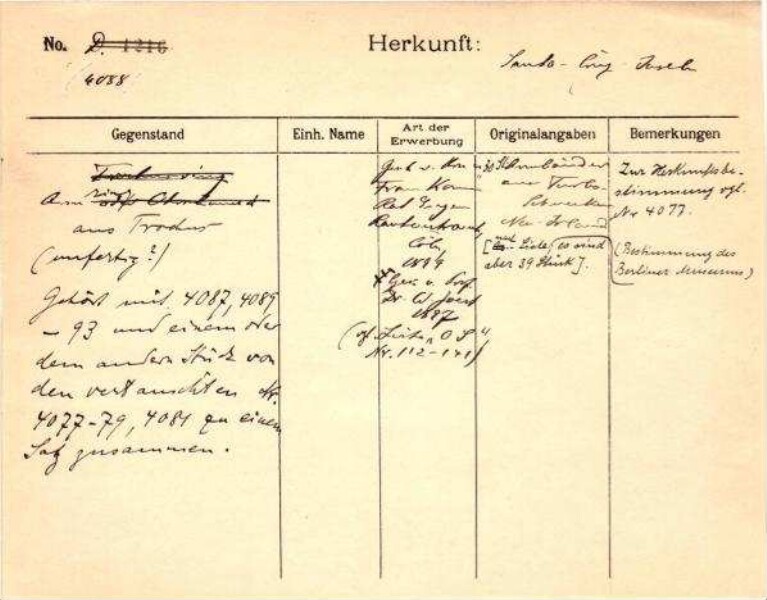 No. D. 1216
4088
Herkunft:
Santa-Cruz-Inseln
Gegenstand
Einh. Name
Art der
Erwerbung
Originalangaben
Bemerkungen
Arm ring
aus Trochus
(unfertig?)
Gehört mit 4087, 4089
- 93 und einem oder
dem andern Stück von
den vertauschten Nr.
4077-79, 4081 zu einem
Satz zusammen.
Gesch. v.
Frau
Rautenstrauch,
Cöln
1899
Ges. v. Prof.
Dr. W. Joest
1897
(vgl. Liste "O S"
Nr. 112-141)
30 St. Armbänder
aus Turbo-
Schnecken
Neu-Irland
[ Liste, es sind
aber 39 Stück].
Zur Herkunftsbe-
stimmung vgl.
Nr 4077.
(Bestimmung des
Berliner Museums)